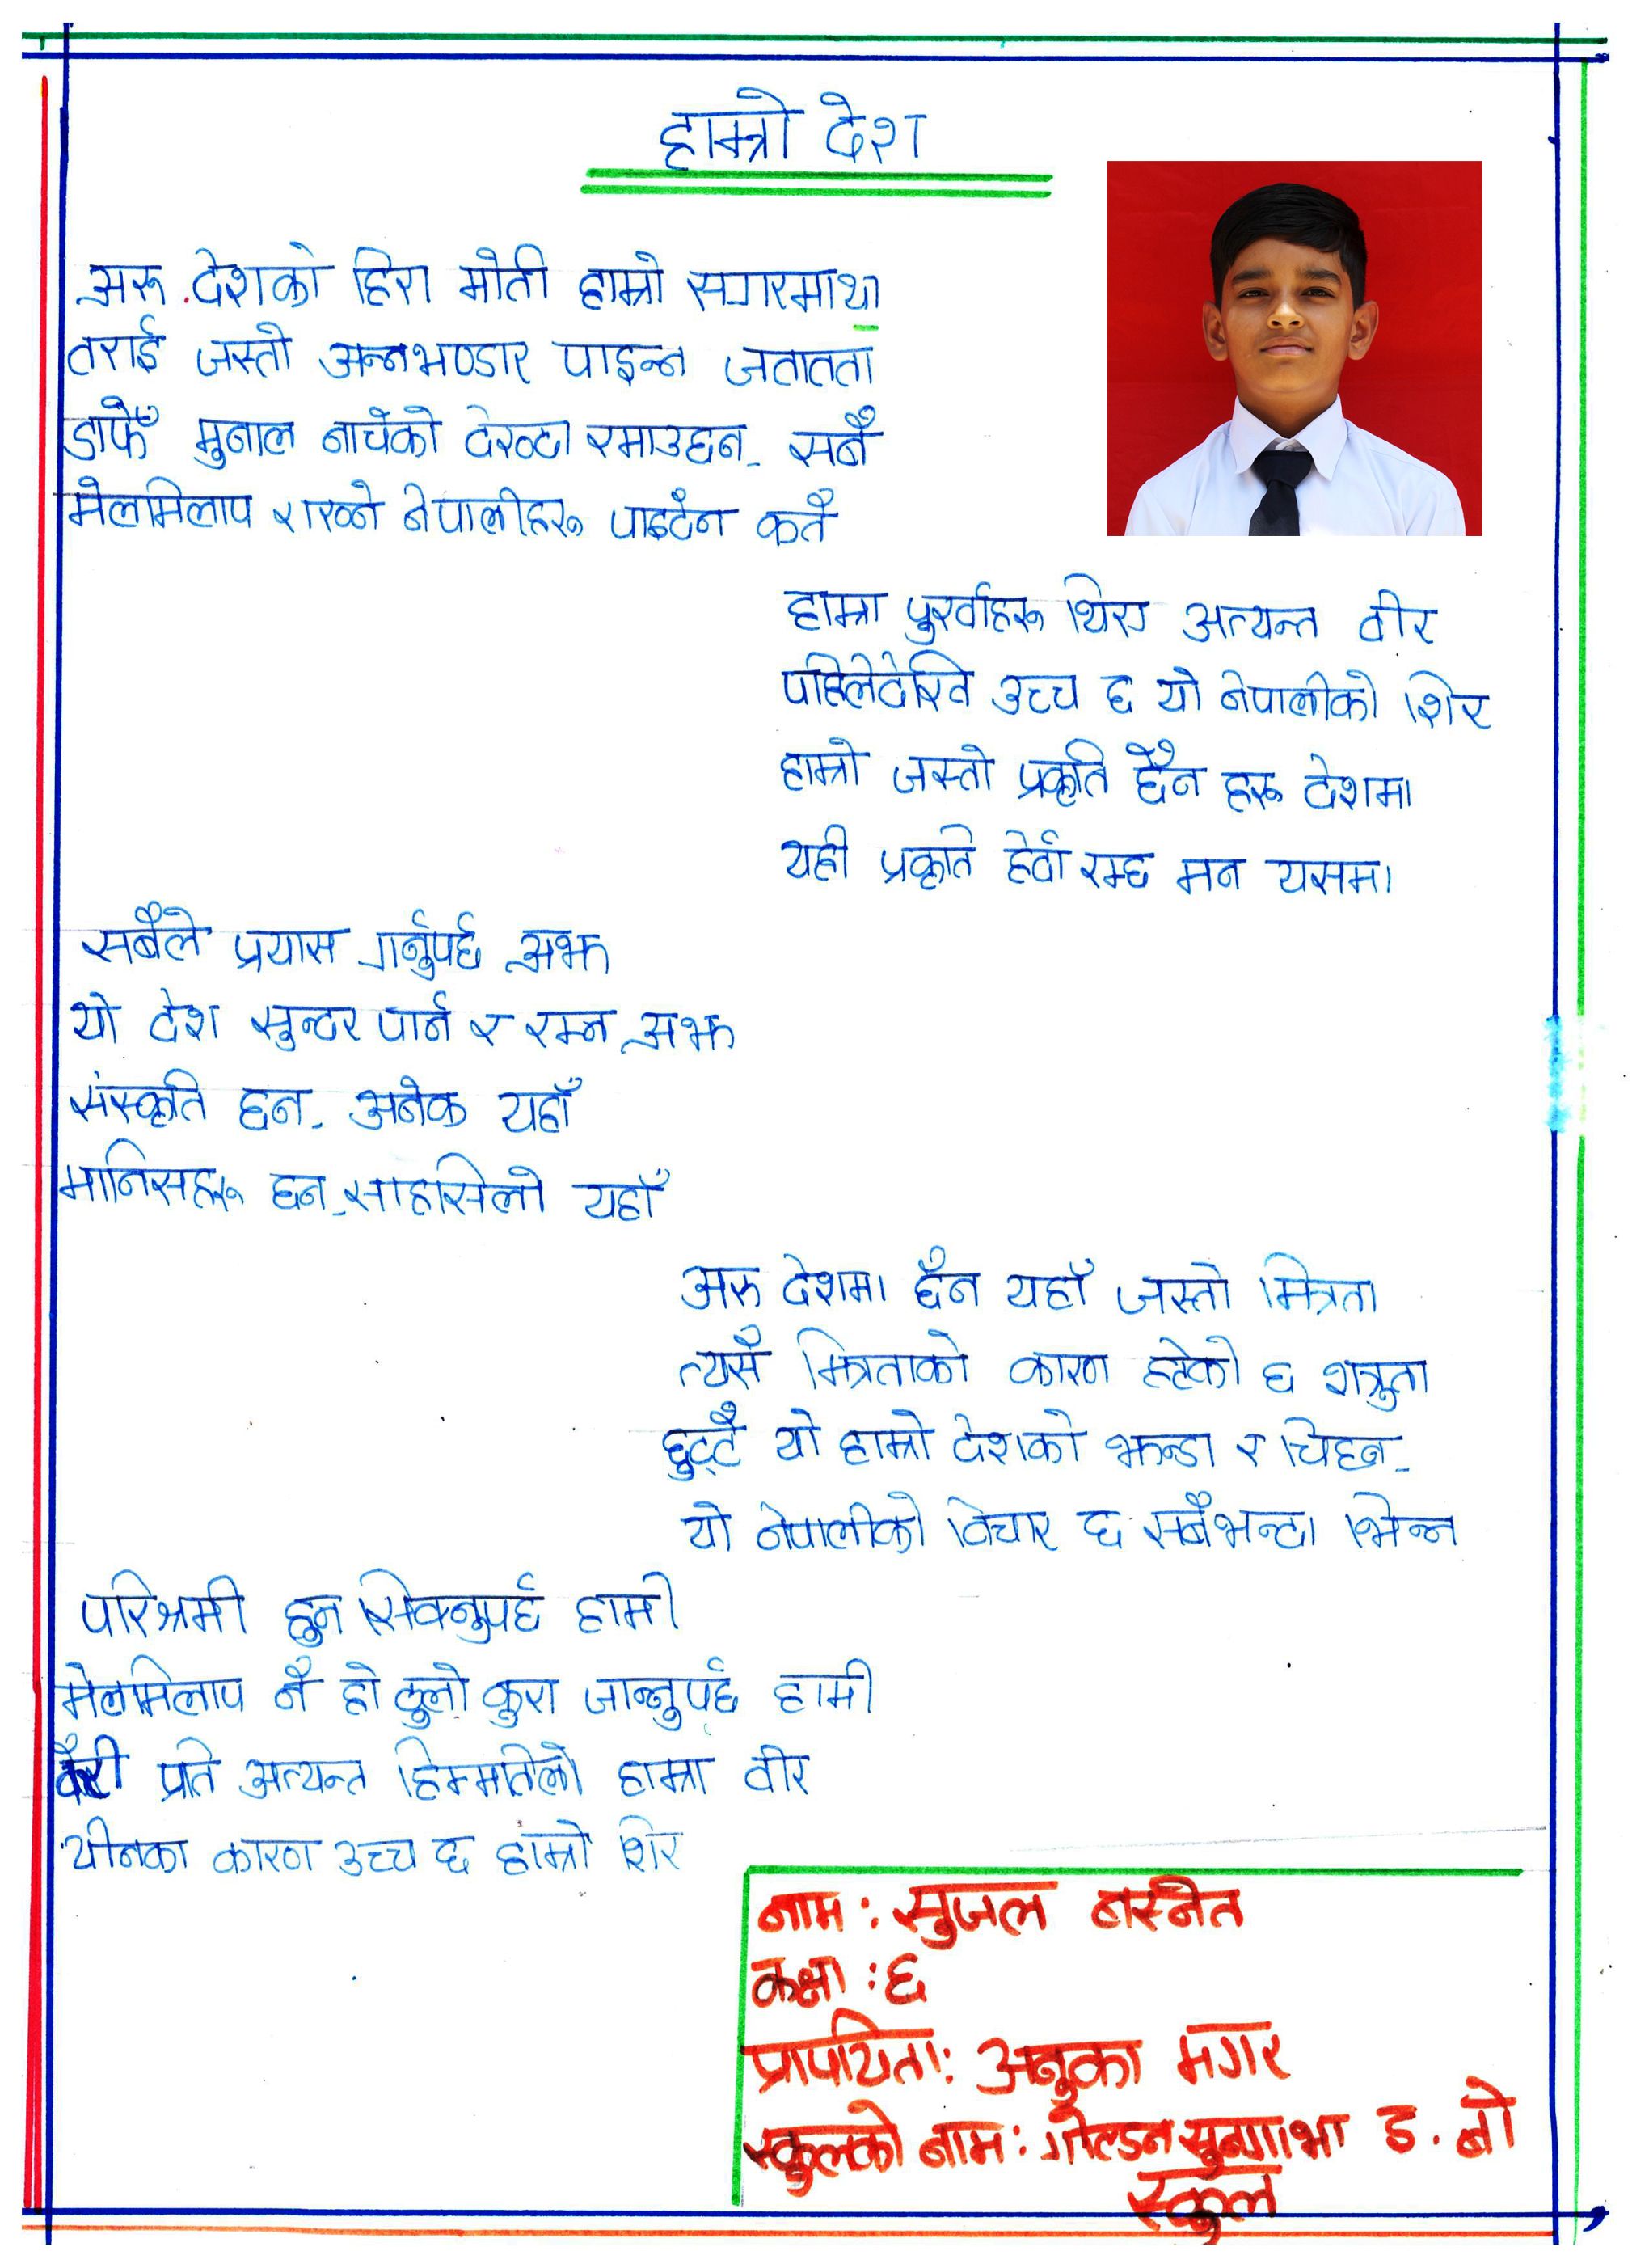 हाम्रो देश
अरु देशको हिरा मोती हाम्रो सगरमाथा
तराई जस्तो अन्नभण्डार पाइन्न जतातता
डाफेँ मुनाल नाचेको देख्दा रमाउछन् सबै
मेलमिलाप राख्ने नेपालीहरू पाइदैन कतै
हाम्रा पुर्खाहरू थिए अत्यन्त वीर
पहिलेदेखि उच्च छ यो नेपालीको शिर
हाम्रो जस्तो प्रकृति छैन हरू देशमा
यही प्रकृति हेर्दा रम्छ मन यसमा
सबैले प्रयास गर्नुपर्छ अझ
यो देश सुन्दर पार्न र रम्न अझ
संस्कृति छन् अनेक यहाँ
मानिसहरू छन् साहसिलो यहाँ
अरु देशमा छैन यहाँ जस्तो मित्रता
त्यसै मित्रताको कारण हटेको छ शत्रुता
छुट्टै यो हाम्रो देशको झन्डा र चिह्न
यो नेपालीको विचार छ सबैभन्दा भिन्न
परिश्रमी हुन सिक्नुपर्छ हामी
मेलमिलाप नै हो ठुलो कुरा जान्नुपर्छ हामी
वैरी प्रति अत्यन्त हिम्मतिलो हाम्रा वीर
यीनका कारण उच्च छ हाम्रो शिर
नाम : सुजल बस्नेत
कक्षा : ६
प्रापयिता: अनुका मगर
स्कुलको नाम: गोल्डन सुनगाभा इ. बो
स्कुल